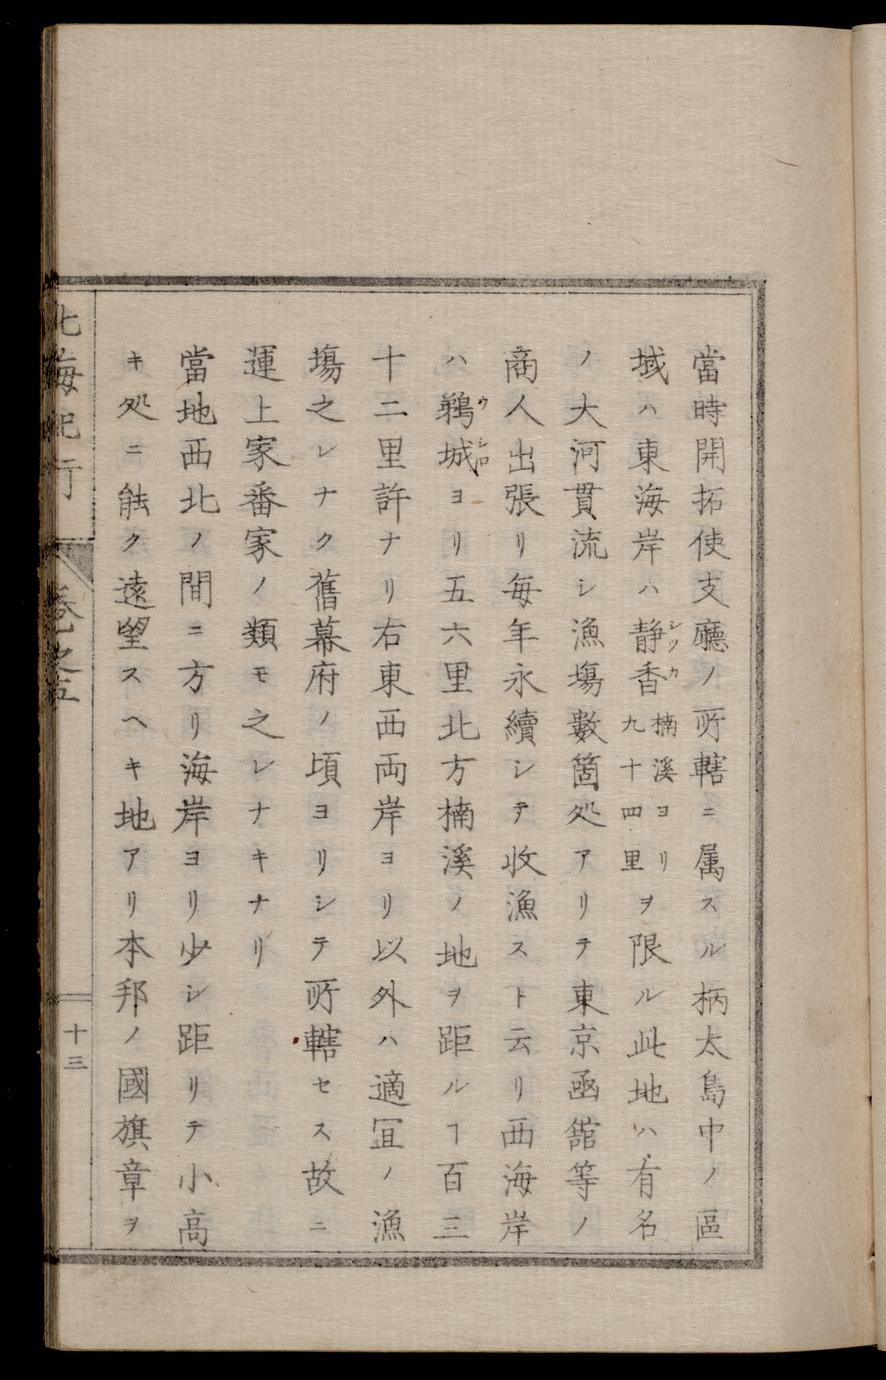 當時開拓使支廳ノ所轄ニ属スル柄太島中ノ區
域ハ東海岸ハ静香シツカ楠溪ヨリ九十四里ヲ限ル此地ハ有名
ノ大河貫流シ漁塲數箇処アリテ東京函舘等ノ
商人出張リ毎年永續シテ收漁スト云リ西海岸
ハ鵜城ウシロヨリ五六里北方楠溪ノ地ヲ距ルヿ百三
十二里許ナリ右東西両岸ヨリ以外ハ適冝ノ漁
塲之レナク舊幕府ノ頃ヨリシテ所轄セス故ニ
運上家番家ノ類モ之レナキナリ
當地西北ノ間ニ方リ海岸ヨリ少シ距リテ小高
キ処ニ能ク遠望スヘキ地アリ本邦ノ國旗章ヲ
北海紀行
卷之五
十三